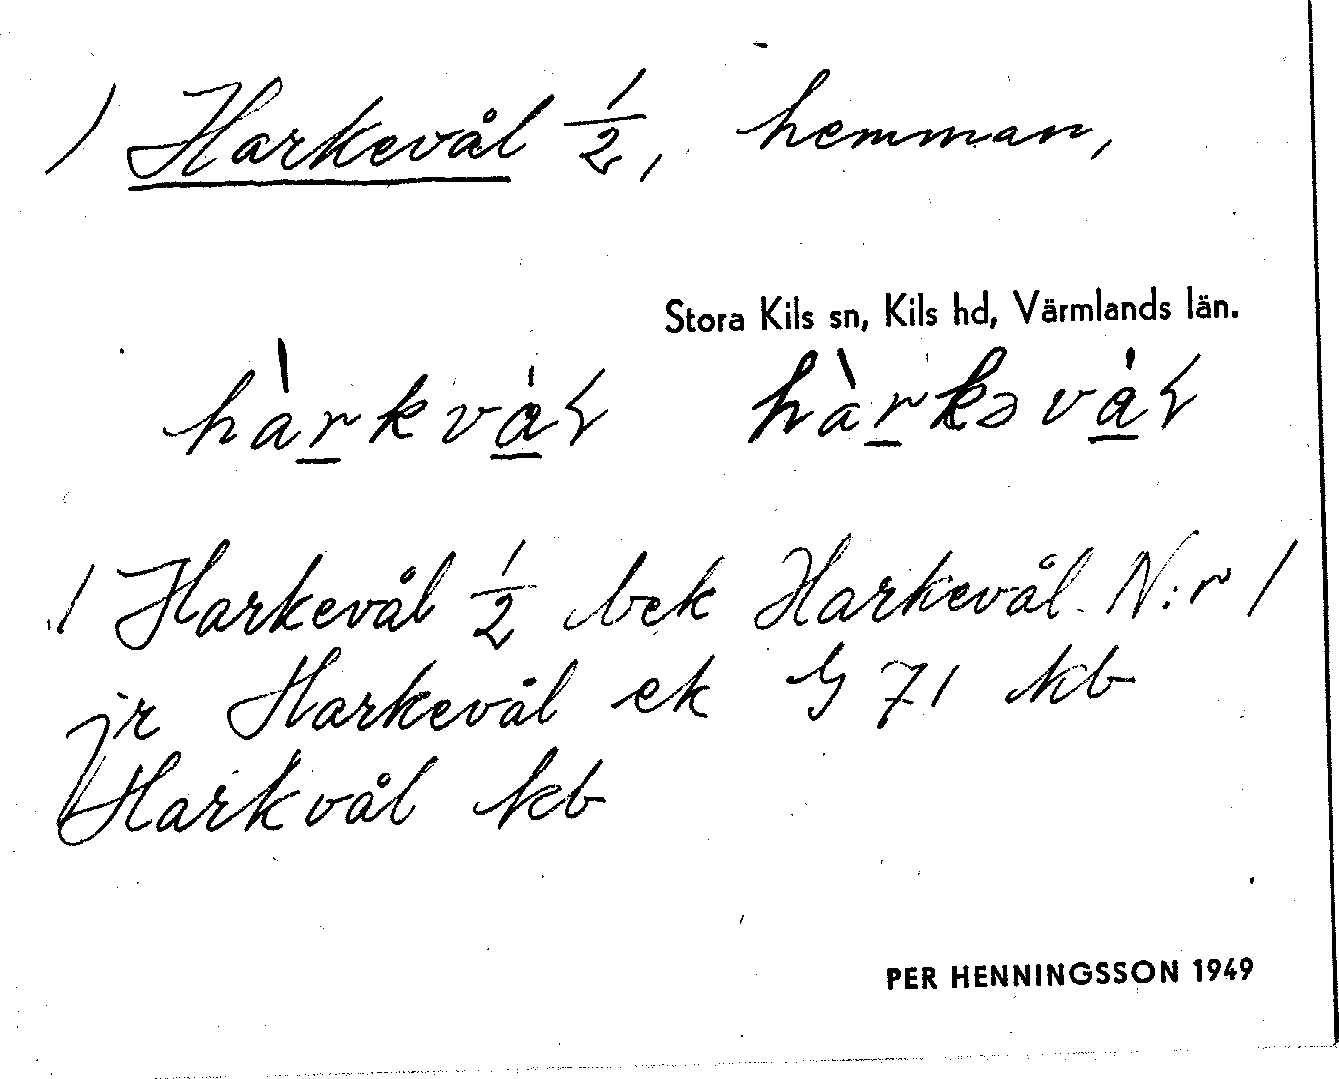 1 Harkevål 1/2, hemman,
Stora Kils sn, Kils hd, Värmlands län.
hàrkvál hàrkəvál
1 Harkevål 1/2 bek Harkevål N:r 1
jr Harkevål ek G 71 kb
Harkvål kb
PER HENNINGSSON 1949